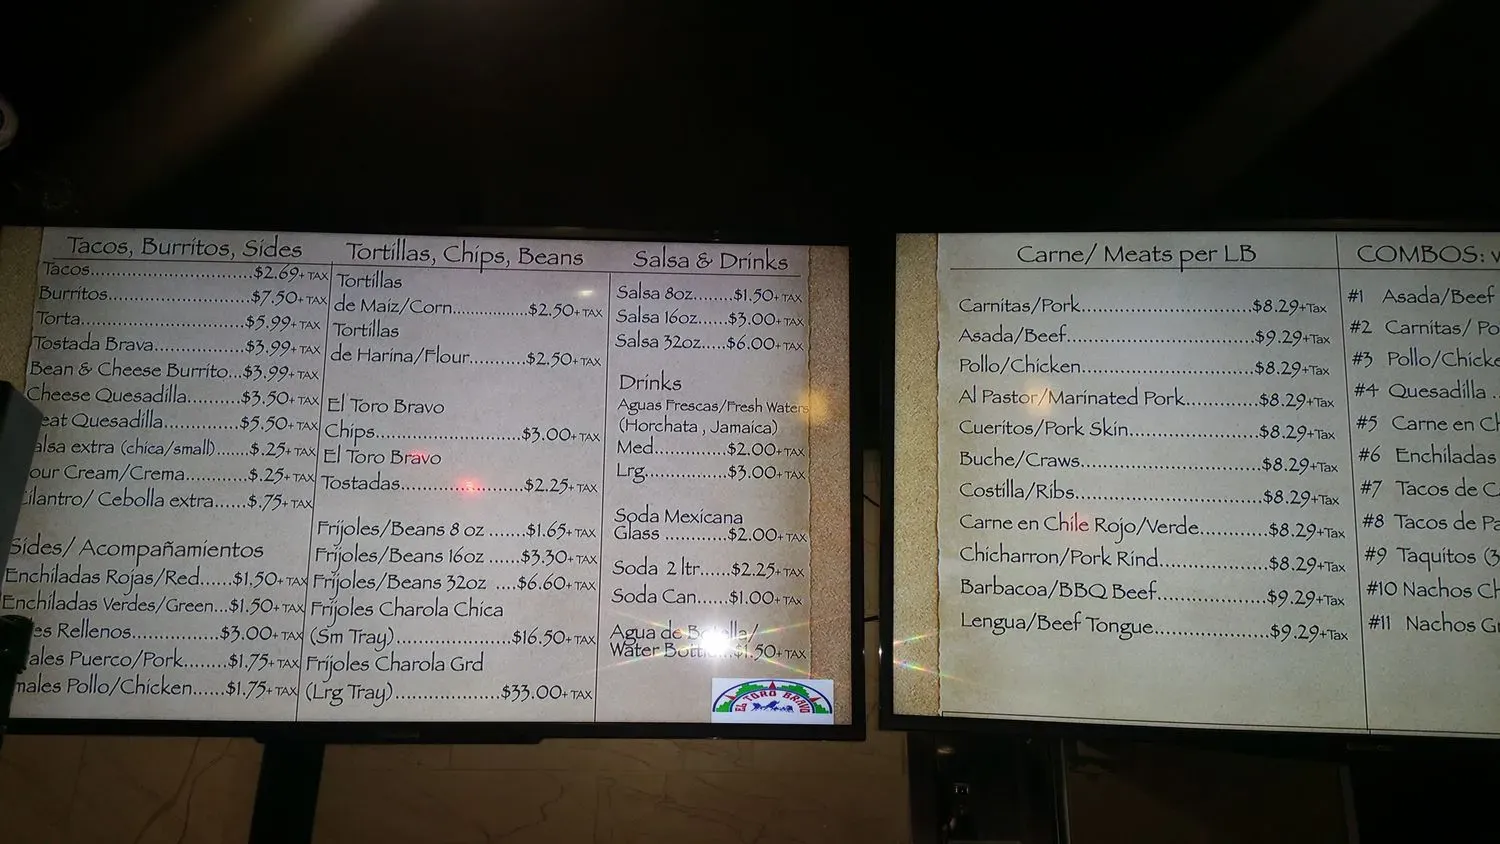 Tacos, Burritos, Sides
Tacos..............................$2.69+ TAX
Burritos..........................$7.50+ TAX
Torta..............................$5.99+ TAX
Tostada Brava..............$3.99+ TAX
Bean & Cheese Burrito...$3.99+ TAX
Cheese Quesadilla.........$3.50+ TAX
eat Quesadilla..............$5.50+ TAX
alsa extra (chica/small).....$.25+ TAX
our Cream/Crema..............$.25+ TAX
ilantro/ Cebolla extra......$.75+ TAX
Sides/ Acompañamientos
Enchiladas Rojas/Red......$1.50+ TAX
Enchiladas Verdes/Green...$1.50+ TAX
es Rellenos..................$3.00+ TAX
ales Puerco/Pork........$1.75+ TAX
males Pollo/Chicken......$1.75+ TAX
Tortillas, Chips, Beans
Tortillas
de Maiz/Corn...................$2.50+ TAX
Tortillas
de Harina/Flour............$2.50+ TAX
El Toro Bravo
Chips..............................$3.00+ TAX
El Toro Bravo
Tostadas..........................$2.25+ TAX
Frijoles/Beans 8 oz ......$1.65+ TAX
Frijoles/Beans 16oz .....$3.30+ TAX
Frijoles/Beans 32oz ....$6.60+ TAX
Frijoles Charola Chica
(Sm Tray)........................$16.50+ TAX
Frijoles Charola Grd
(Lrg Tray)......................$33.00+ TAX
Salsa & Drinks
Salsa 8oz........$1.50+ TAX
Salsa 16oz......$3.00+ TAX
Salsa 32oz.....$6.00+ TAX
Drinks
Aguas Frescas/Fresh Waters
(Horchata , Jamaica)
Med.................$2.00+ TAX
Lrg...................$3.00+ TAX
Soda Mexicana
Glass ..............$2.00+ TAX
Soda 2 ltr......$2.25+ TAX
Soda Can......$1.00+ TAX
Agua de Botella/
Water Bottle...$1.50+ TAX
EL TORO BRAVO
Carne/ Meats per LB
Carnitas/Pork..............................$8.29+Tax
Asada/Beef.................................$9.29+Tax
Pollo/Chicken..............................$8.29+Tax
Al Pastor/Marinated Pork.............$8.29+Tax
Cueritos/Pork Skin.......................$8.29+Tax
Buche/Craws................................$8.29+Tax
Costilla/Ribs.................................$8.29+Tax
Carne en Chile Rojo/Verde............$8.29+Tax
Chicharron/Pork Rind...................$8.29+Tax
Barbacoa/BBQ Beef....................$9.29+Tax
Lengua/Beef Tongue....................$9.29+Tax
COMBOS:
#1 Asada/Beef
#2 Carnitas/ Po
#3 Pollo/Chicke
#4 Quesadilla ..
#5 Carne en Ch
#6 Enchiladas
#7 Tacos de C
#8 Tacos de Pa
#9 Taquitos (3
#10 Nachos Ch
#11 Nachos G